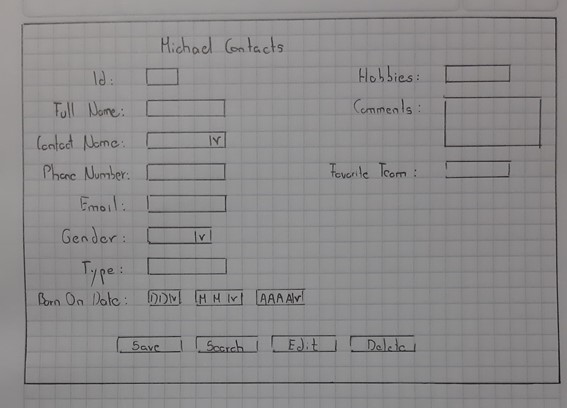 Michael Contacts
Id:
Full Name:
Contact Name:
Phone Number:
Email:
Gender:
Type:
Born On Date: DD MM AAAA
Hobbies:
Comments:
Favorite Team:
Save Search Edit Delete